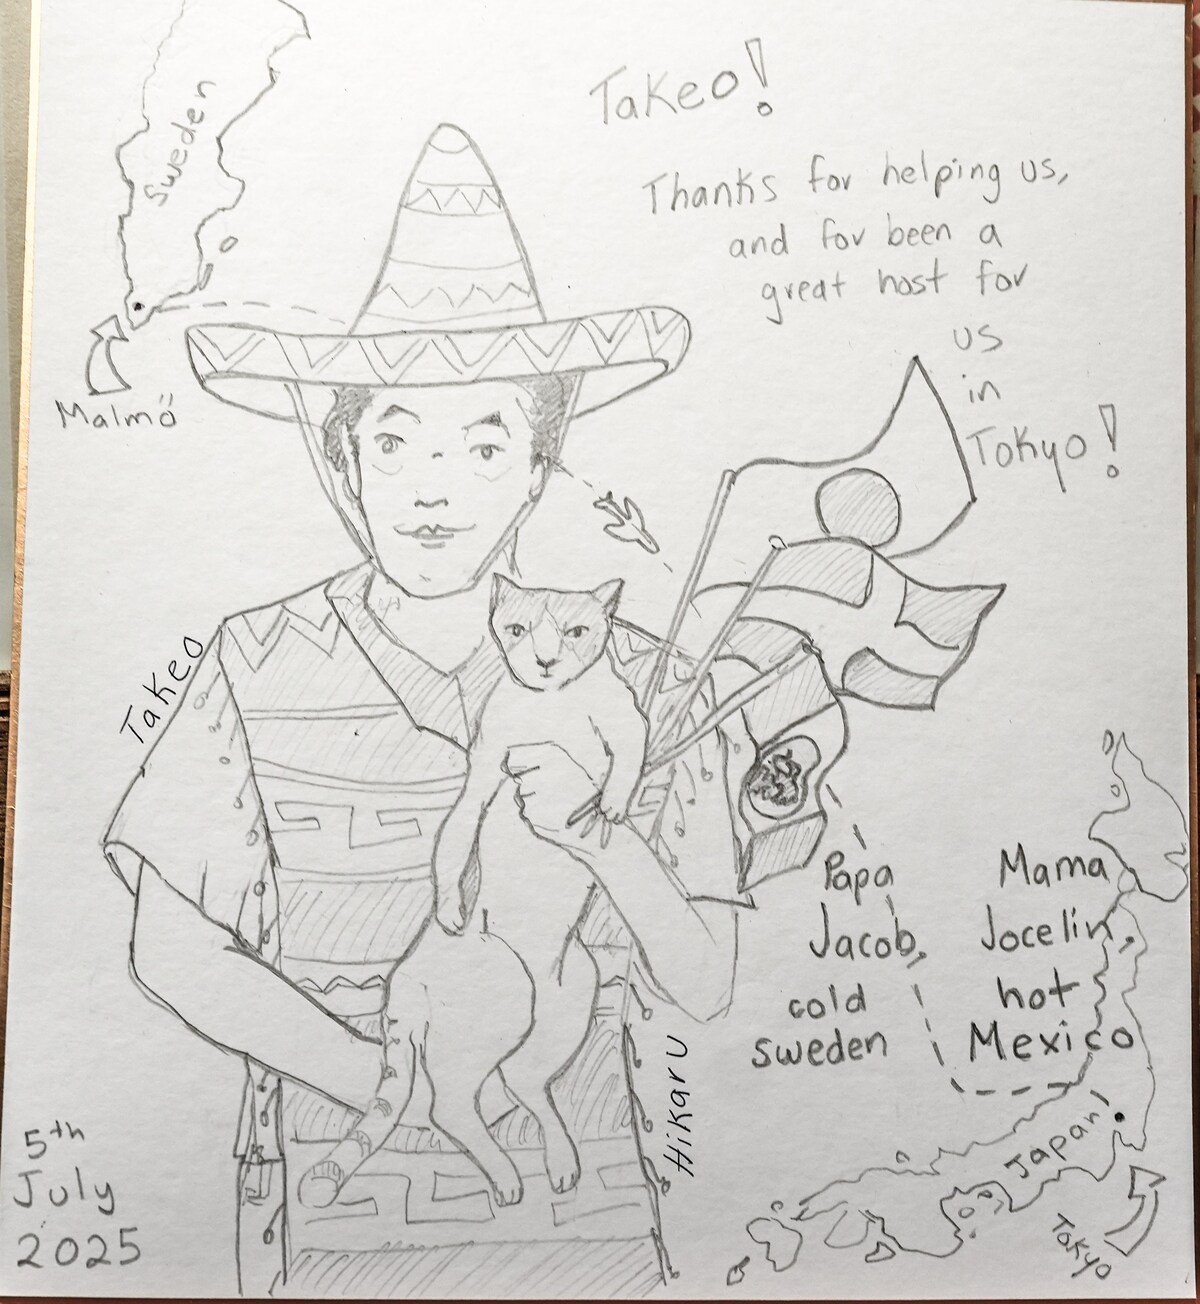 Sweden
Takeo!
Thanks for helping us,
and for been a
great host for
us
in
Tokyo!
Malmö
Takeo
Papa
Jacob,
cold
sweden
Mama
Jocelin,
hot
Mexico
Hikaru
5th
July
2025
Japan
Tokyo